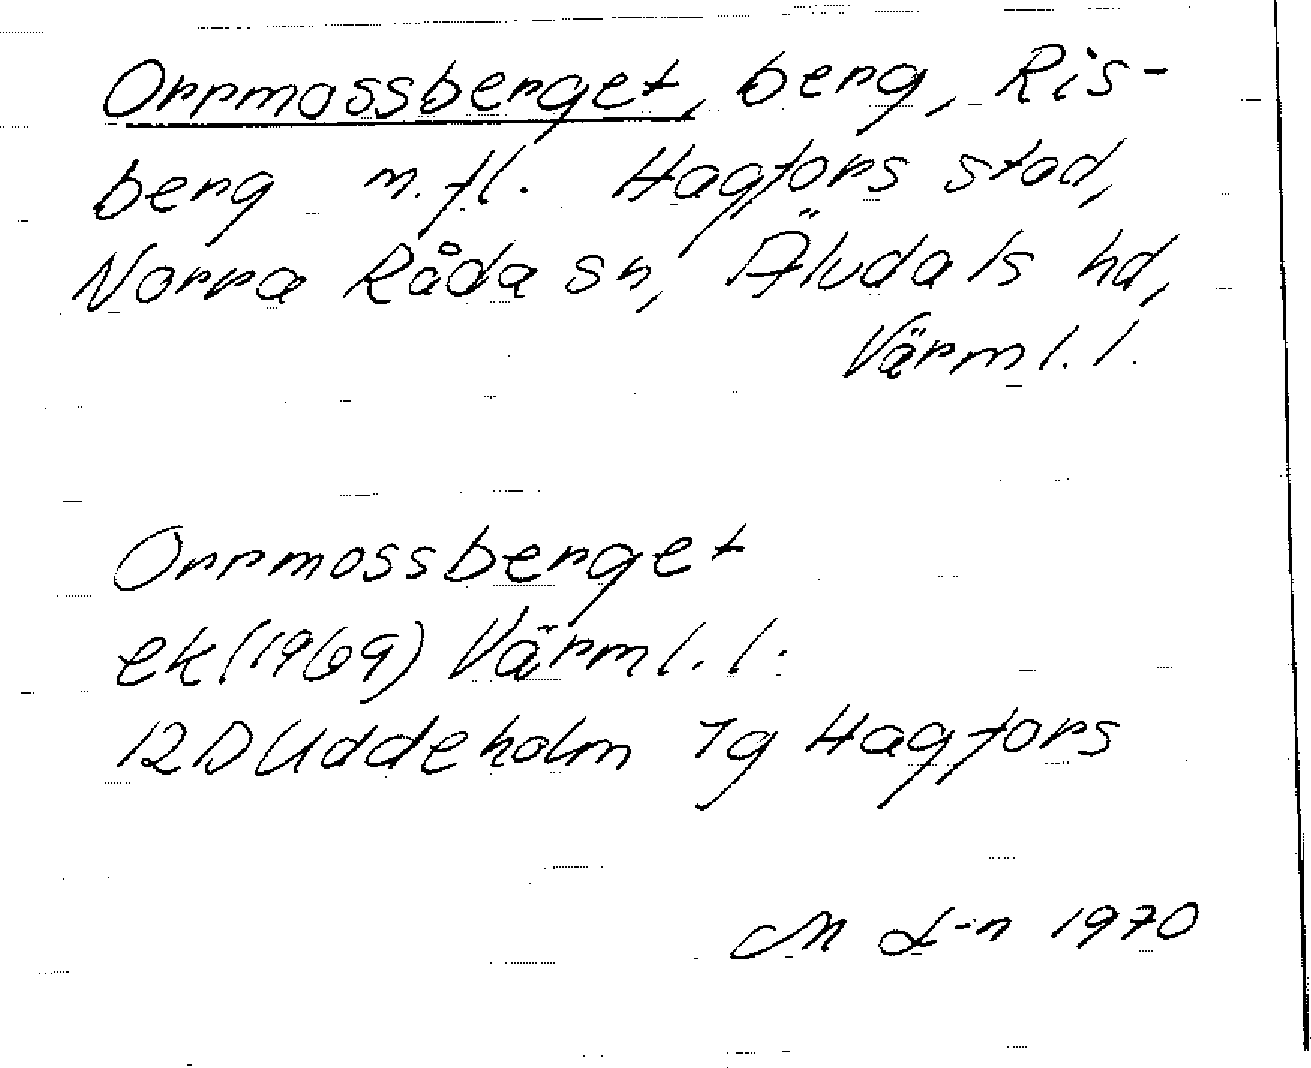 Orrmossberget, berg, Ris-
berg m.fl. Hagfors stad,
Norra Råda sn, Älvdals hd,
Värml. l.
Orrmossberget
ek (1969) Värml. l.
12D Uddeholm 7g Hagfors
M L-n 1970